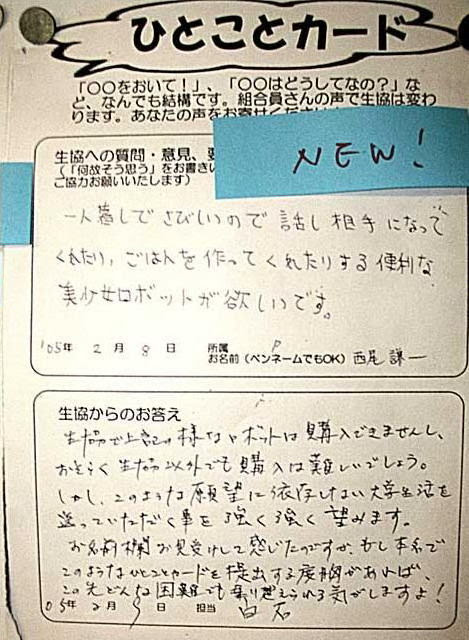 ひとことカード
「〇〇をおいて！」、「〇〇はどうしてなの？」な
ど、なんでも結構です。組合員さんの声で生協は変わ
ります。あなたの声をお寄せください
NEW!
生協への質問・意見、要
（「何故そう思う」をお書き
ご協力お願いいたします）
一人暮しでさびしいので話し相手になって
くれたり、ごはんを作ってくれたりする便利な
美少女ロボットが欲しいです。
'05年 2月 8日 所属
お名前（ペンネームでもOK） 西尾 謙一
生協からのお答え
生協で上記の様なロボットは購入できませんし、
おそらく生協以外でも購入は難しいでしょう。
しかし、このような願望に依存しない大学生活を
送っていただく事を強く強く望みます。
お名前欄お見受けして感じたのですが、もし本名で
このようなひとことカードを提出する度胸があれば、
この先どんな困難でも乗り越えられる気がしますよ！
05年 2月 9日 担当 白石